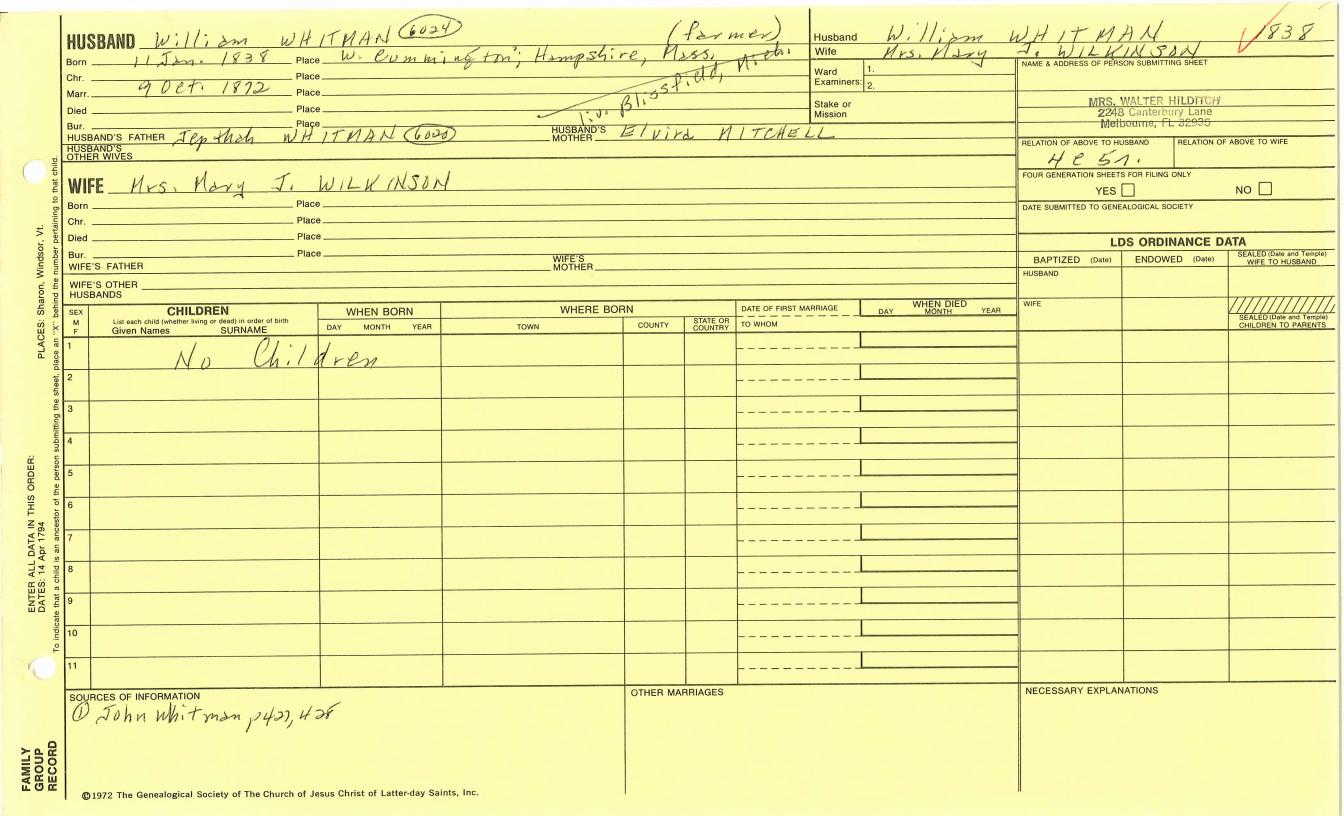 HUSBAND William WHITMAN 6024 (farmer)
Born 11 Jan. 1838 Place W. Cummington; Hampshire, Mass.
Chr. Place
Marr. 9 Oct. 1872 Place liv. Blissfield, Mich.
Died Place
Bur. Place
HUSBAND'S FATHER Jepthah WHITMAN 6020 HUSBAND'S MOTHER Elvira MITCHELL
HUSBAND'S OTHER WIVES
Husband William WHITMAN 1838
Wife Mrs. Mary J. WILKINSON
Ward Examiners: 1.
2.
Stake or Mission
NAME & ADDRESS OF PERSON SUBMITTING SHEET
MRS. WALTER HILDITCH
2248 Canterbury Lane
Melbourne, FL 32935
RELATION OF ABOVE TO HUSBAND RELATION OF ABOVE TO WIFE
4 c 5 r.
FOUR GENERATION SHEETS FOR FILING ONLY
YES NO
DATE SUBMITTED TO GENEALOGICAL SOCIETY
WIFE Mrs. Mary J. WILKINSON
Born Place
Chr. Place
Died Place
Bur. Place
WIFE'S FATHER WIFE'S MOTHER
WIFE'S OTHER HUSBANDS
LDS ORDINANCE DATA
BAPTIZED (Date) ENDOWED (Date) SEALED (Date and Temple) WIFE TO HUSBAND
HUSBAND
WIFE
SEALED (Date and Temple) CHILDREN TO PARENTS
SEX M F
CHILDREN
List each child (whether living or dead) in order of birth
Given Names SURNAME
WHEN BORN
DAY MONTH YEAR
WHERE BORN
TOWN COUNTY STATE OR COUNTRY
DATE OF FIRST MARRIAGE
TO WHOM
WHEN DIED
DAY MONTH YEAR
1 No Children
2
3
4
5
6
7
8
9
10
11
SOURCES OF INFORMATION
① John Whitman p427, 428
OTHER MARRIAGES
NECESSARY EXPLANATIONS
©1972 The Genealogical Society of The Church of Jesus Christ of Latter-day Saints, Inc.
FAMILY GROUP RECORD
ENTER ALL DATA IN THIS ORDER:
DATES: 14 Apr 1794 PLACES: Sharon, Windsor, Vt.
To indicate that a child is an ancestor of the person submitting the sheet, place an "X" behind the number pertaining to that child.